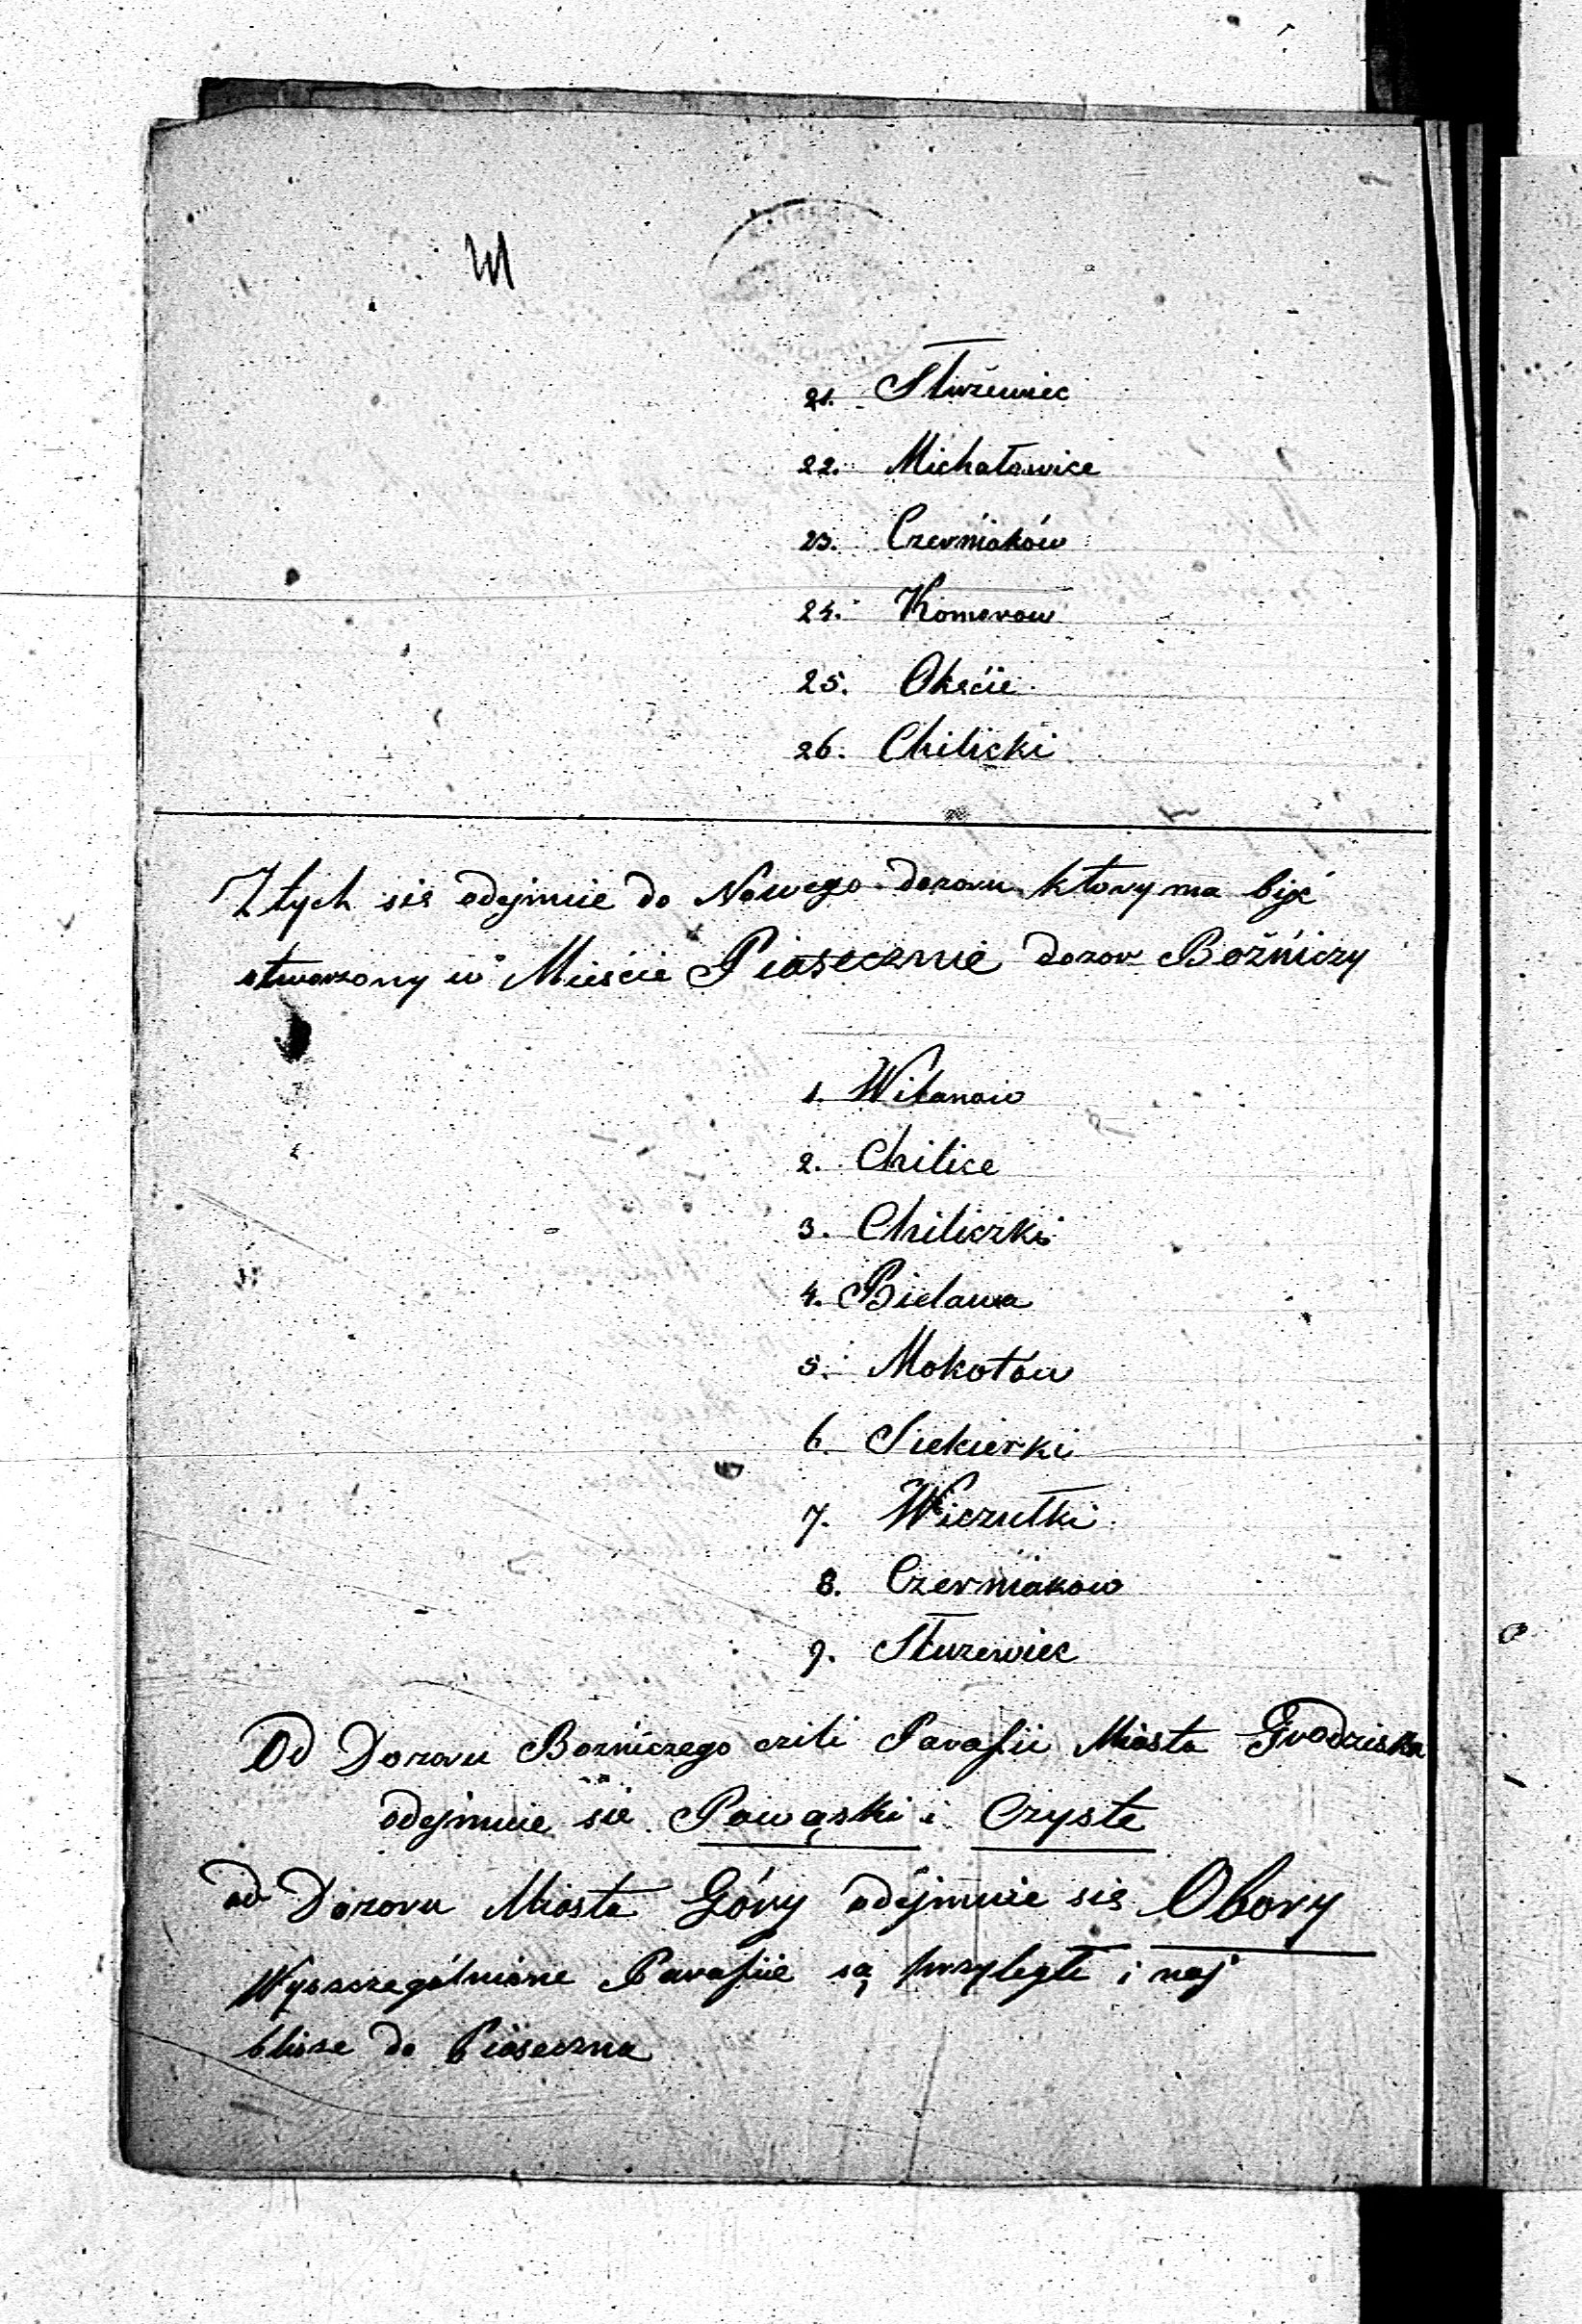 21. Służewiec
22. Michałowice
23. Czerniaków
24. Komorow
25. Okęcie
26. Chilicki
Z tych sie odejmie do Nowego dozoru ktory ma być
otworzony w Mieście Piasecznie dozor Bożniczy
1. Wilanow
2. Chilice
3. Chiliczki
4. Bielawa
5. Mokotów
6. Siekierki
7. Wiczułki
8. Czerniakow
9. Służewiec
Od Dozoru Bozniczego czili Parafii Miasta Grodziska
odejmuie sie Powąski i Czyste
od Dozoru Miasta Góry odejmuie sie Obory
Wyszczególnione Parafiie są przyległe i naj
blisze do Piaseczna